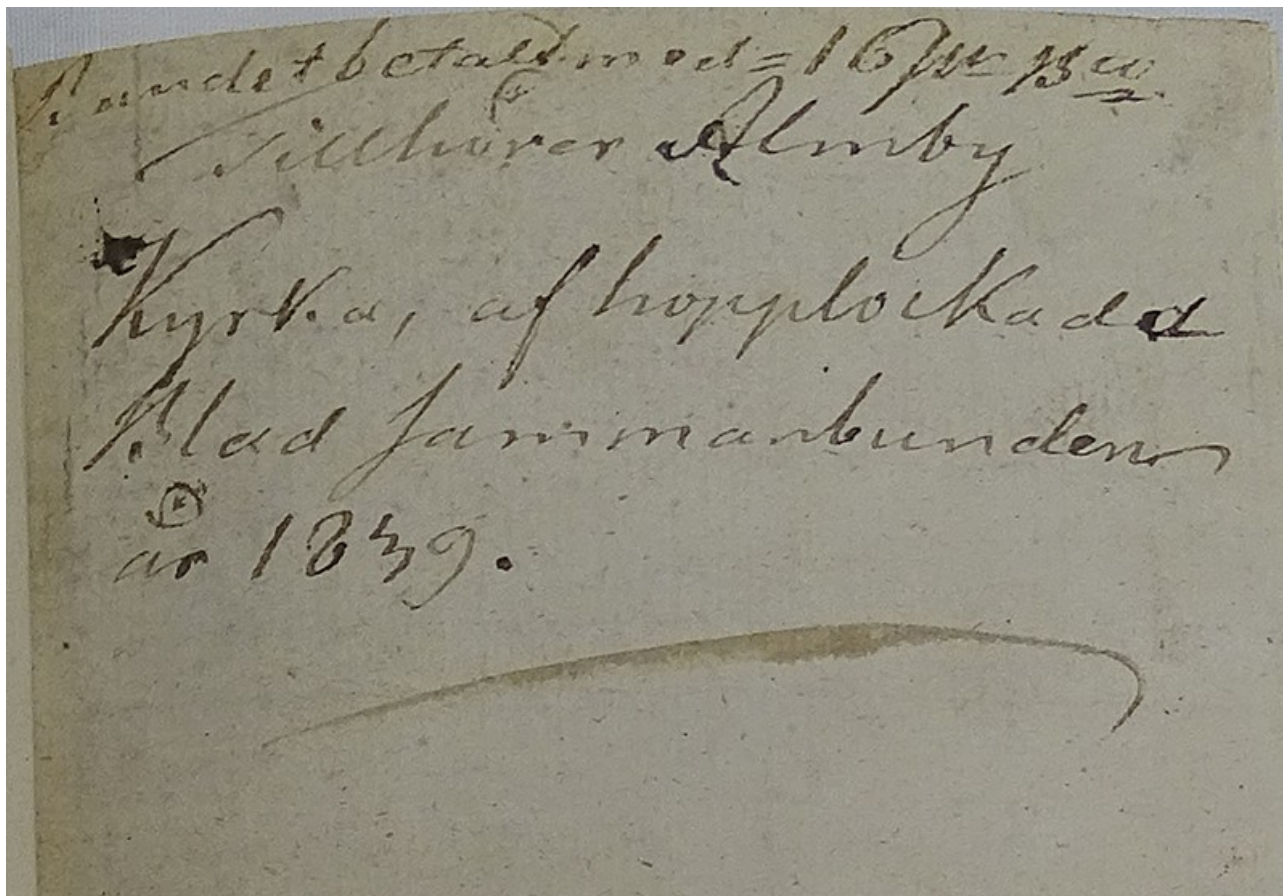 Bandet betalt med = 16
Tillhörer Almby
Kyrka, af hopplockade
Blad sammanbunden
år 1839.